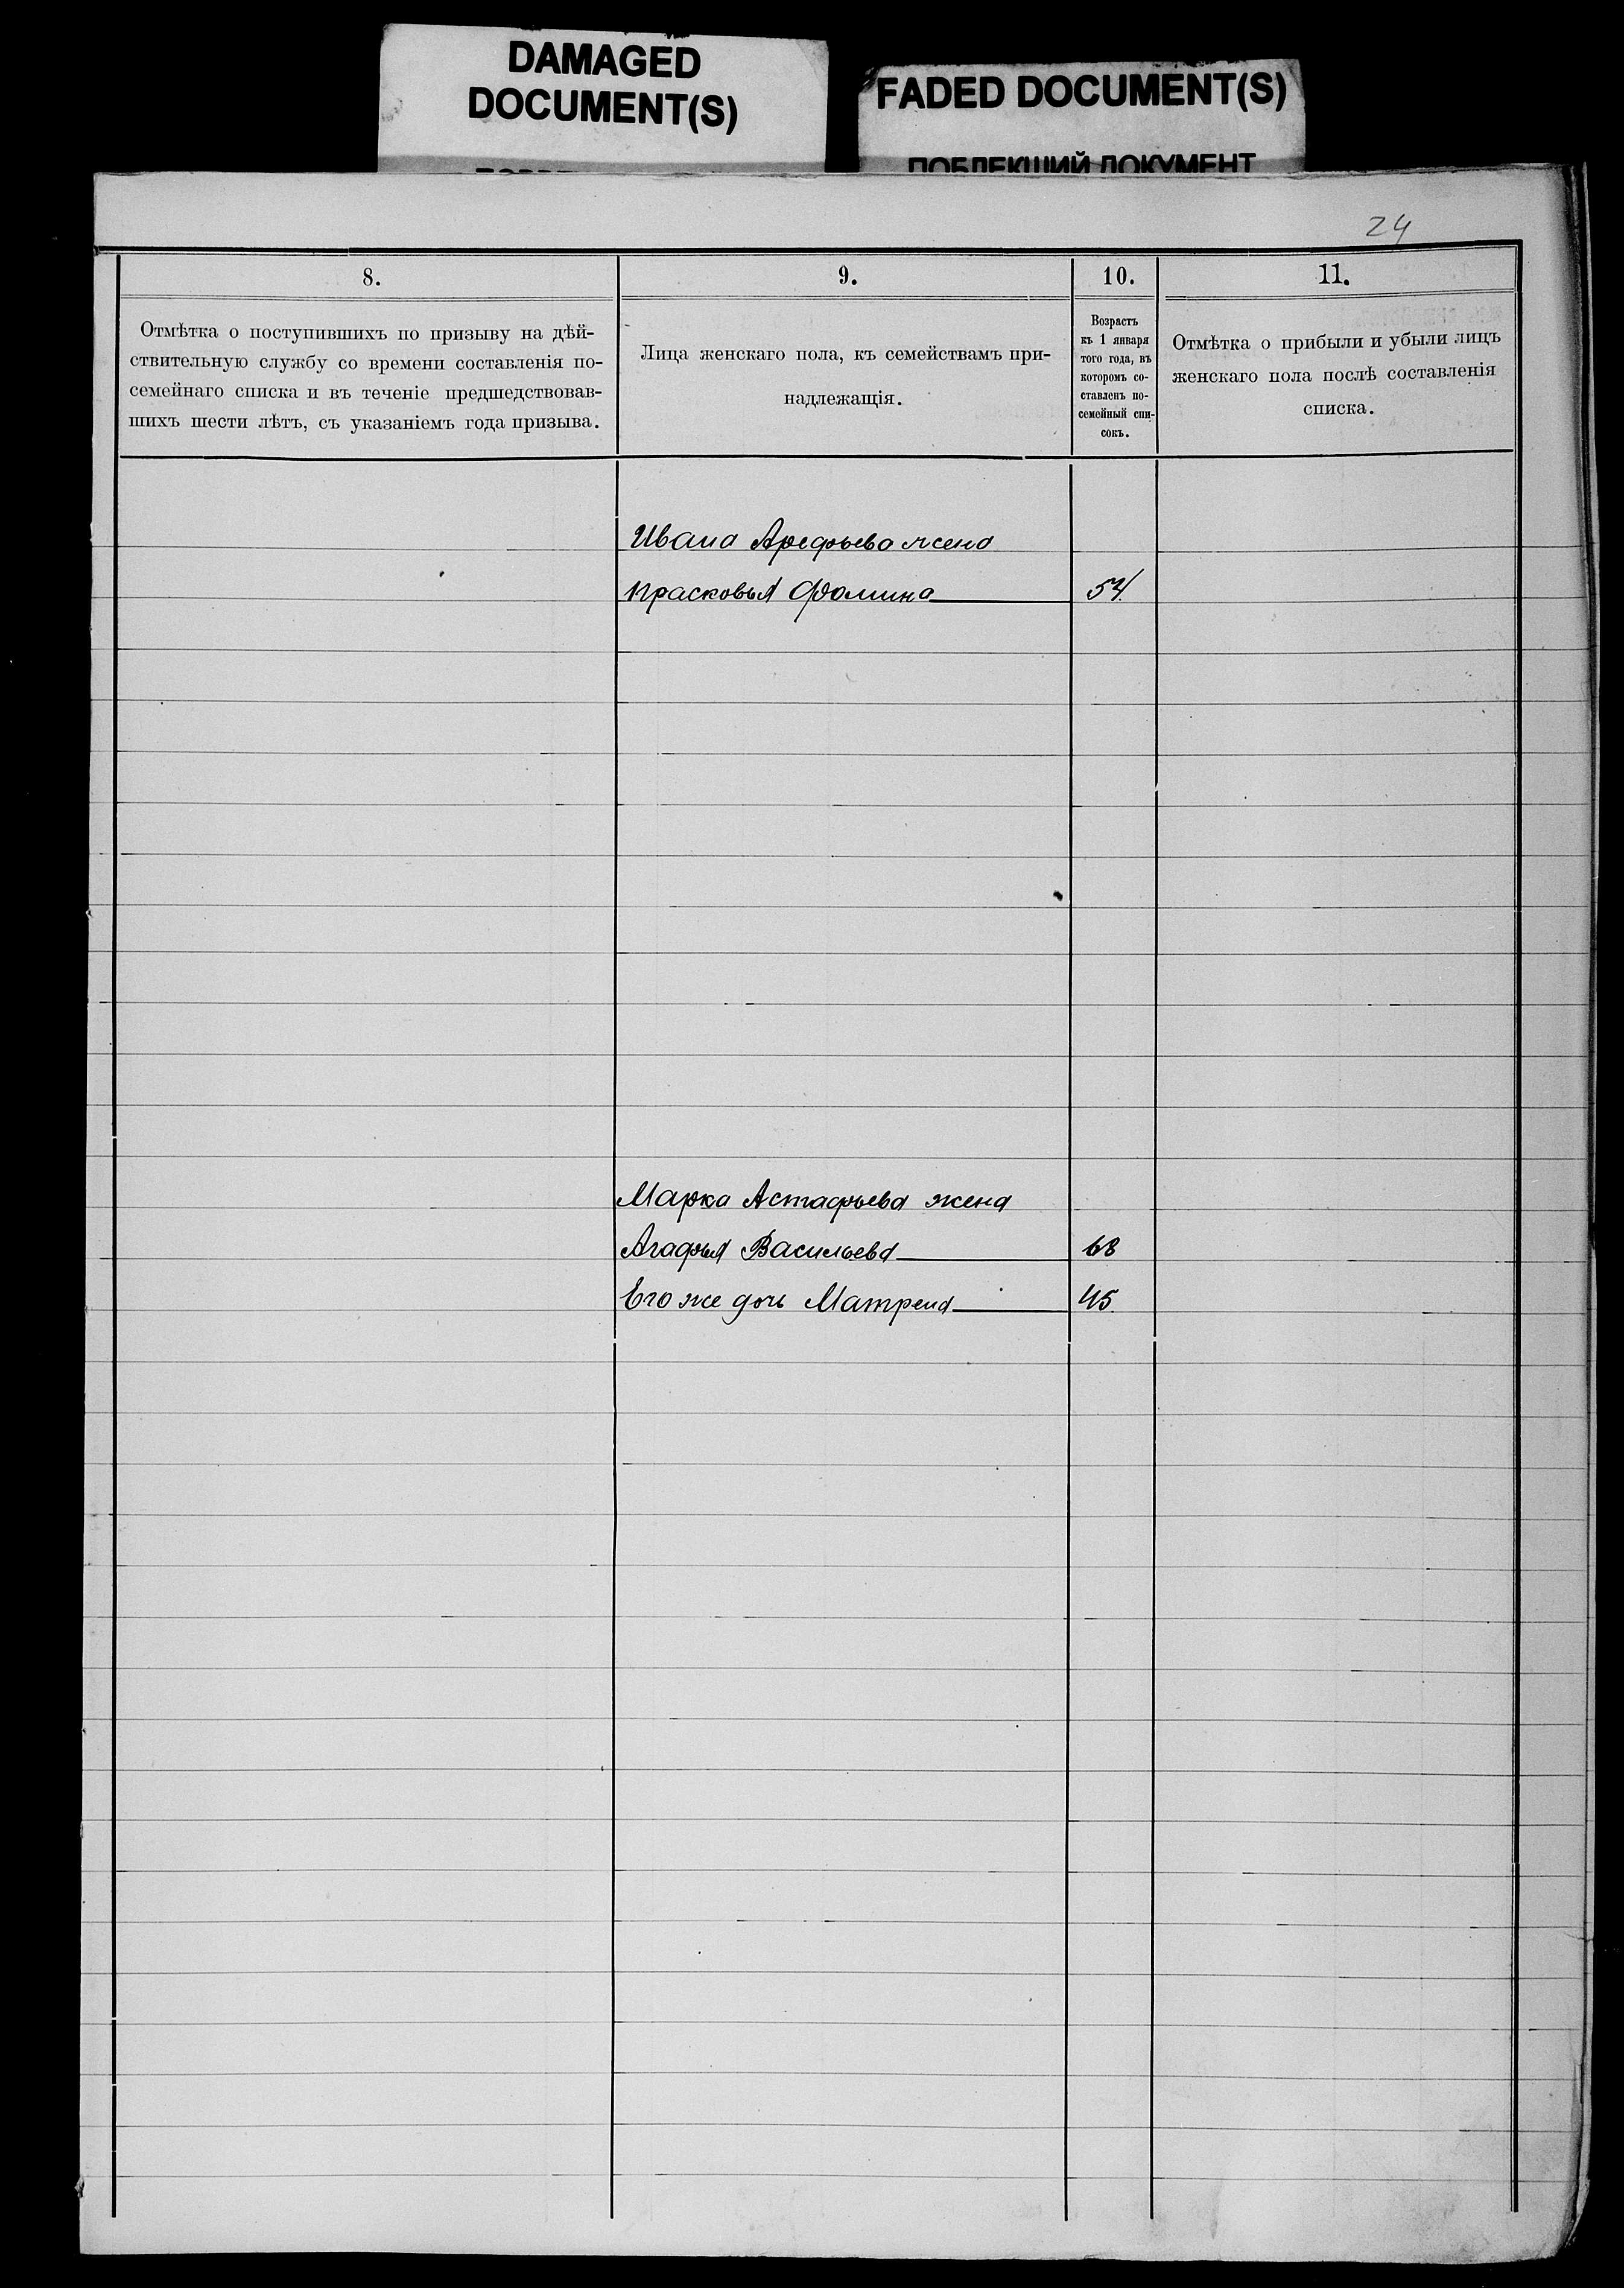 DAMAGED
DOCUMENT(S)
FADED DOCUMENT(S)
ПОБЛЕКШИЙ ДОКУМЕНТ
24
8.
Отмѣтка о поступившихъ по призыву на дѣй-
ствительную службу со времени составленія по-
семейнаго списка и въ теченіе предшедствовав-
шихъ шести лѣтъ, съ указаніемъ года призыва.
9.
Лица женскаго пола, къ семействамъ при-
надлежащія.
10.
Возрастъ
къ 1 января
того года, въ
которомъ со-
ставленъ по-
семейный спи-
сокъ.
11.
Отмѣтка о прибыли и убыли лицъ
женскаго пола послѣ составленія
списка.
Ивана Арефьева жена
Прасковья Фомина 54.
Марка Астафьева жена
Агафья Васильева 68
Его же дочь Матрена 45.